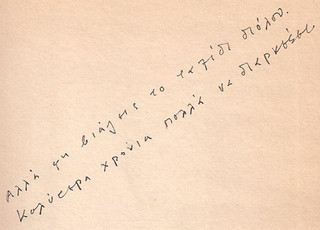 Αλλά μη βιάζεις το ταξίδι διόλου.
Καλύτερα χρόνια πολλά να διαρκέσει